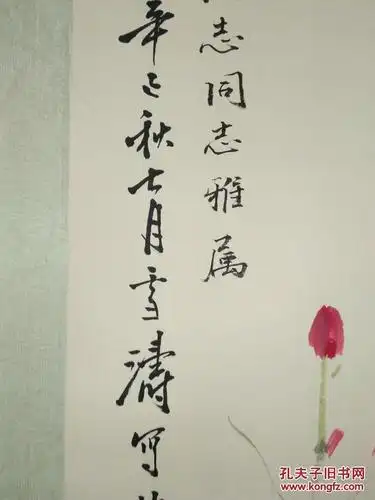 志同志雅属
辛巳秋七月雪涛写
孔夫子旧书网
www.kongfz.com